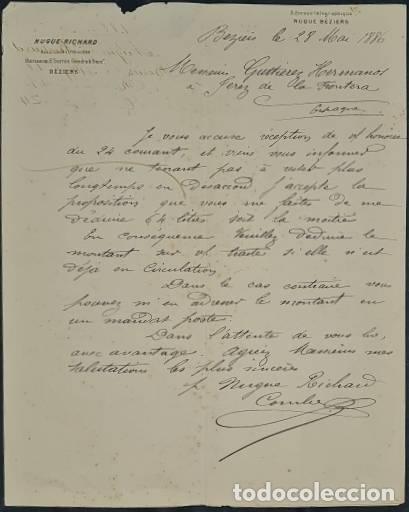 Adresse télégraphique
NUGUE BÉZIERS
NUGUE-RICHARD
BÉZIERS
Béziers le 28 Mai 1886
Messieurs Guttierez Hermanos
à Jerez de la Frontera
Espagne
Je vous accuse réception de vl honorée
du 24 courant, et viens vous informer
que ne tenant pas à rester plus
longtemps en désaccord j'accepte la
proposition que vous me faites de me
déduire 64 litres soit la moitié
En conséquence Veuillez déduire le
montant sur vl. traite si elle n'est
déjà en Circulation.
Dans le cas contraire vous
pouvez m'en adresser le montant en
un mandat poste.
Dans l'attente de vous lire,
avec avantage. Agréez Messieurs mes
salutations les plus sincères
p. Nugue Richard
todocoleccion.net